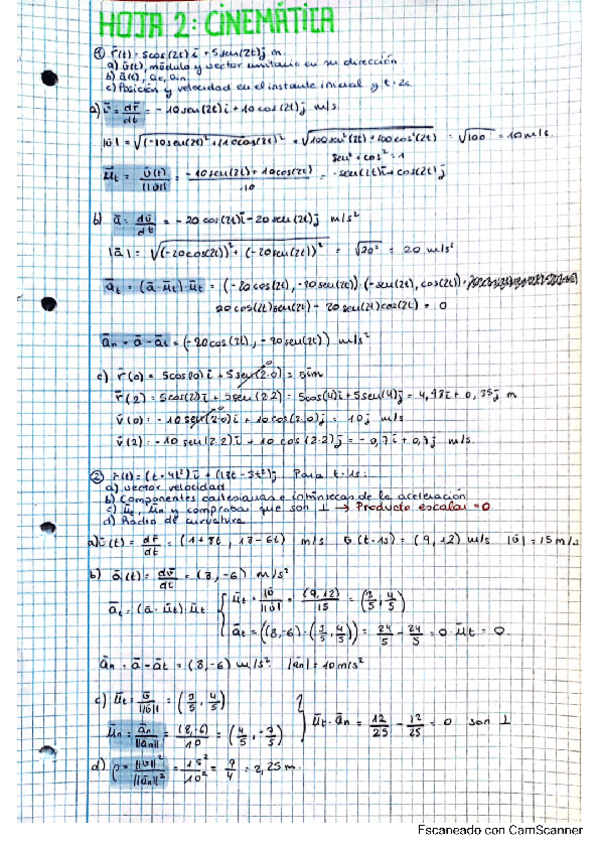 HOJA 2: CINEMÁTICA
① r̄(t) = 5cos(2t) i + 5sen(2t) j m
a) v̄(t), módulo y vector unitario en su dirección
b) ā(t), at, an
c) Posición y velocidad en el instante inicial y t = 2s
a) v̄ = dr̄/dt = -10sen(2t) i + 10cos(2t) j m/s
|v̄| = √((-10sen(2t))² + (10cos(2t))²) = √(100sen²(2t) + 100cos²(2t)) = √100 = 10 m/s
sen² + cos² = 1
ūt = v̄(t)/||v̄|| = (-10sen(2t) + 10cos(2t))/10 = -sen(2t) i + cos(2t) j
b) ā = dv̄/dt = -20cos(2t) i - 20sen(2t) j m/s²
|ā| = √((-20cos(2t))² + (-20sen(2t))²) = √20² = 20 m/s²
āt = (ā·ūt)·ūt = (-20cos(2t), -20sen(2t))·(-sen(2t), cos(2t))
20cos(2t)sen(2t) - 20sen(2t)cos(2t) = 0
ān = ā - āt = (-20cos(2t), -20sen(2t)) m/s²
c) r̄(0) = 5cos(0) i + 5sen(2·0) = 5i m
r̄(2) = 5cos(2) i + 5sen(2·2) = 5cos(4) i + 5sen(4) j = 4,98 i + 0,35 j m
v̄(0) = -10sen(2·0) i + 10cos(2·0) j = 10 j m/s
v̄(2) = -10sen(2·2) i + 10cos(2·2) j = -0,7 i + 0,7 j m/s
② r̄(t) = (t + 4t²) i + (18t - 3t²) j Para t = 1s:
a) vector velocidad
b) Componentes cartesianas e intrínsecas de la aceleración
c) ūt, ūn y comprobar que son ⊥ → Producto escalar = 0
d) Radio de curvatura
a) v̄(t) = dr̄/dt = (1 + 8t, 18 - 6t) m/s v̄(t=1s) = (9, 12) m/s |v̄| = 15 m/s
b) ā(t) = dv̄/dt = (8, -6) m/s²
āt = (ā·ūt)·ūt { ūt = v̄/||v̄|| = (9, 12)/15 = (3/5, 4/5)
āt = ((8, -6)·(3/5, 4/5)) = 24/5 - 24/5 = 0·ūt = 0
ān = ā - āt = (8, -6) m/s² |ān| = 10 m/s²
c) ūt = v̄/||v̄|| = (3/5, 4/5)
ūn = ān/||ān|| = (8, -6)/10 = (4/5, -3/5) } ūt·ān = 12/25 - 12/25 = 0 son ⊥
d) ρ = ||v̄||²/||ān||² = 15²/10² = 9/4 = 2,25 m
Escaneado con CamScanner